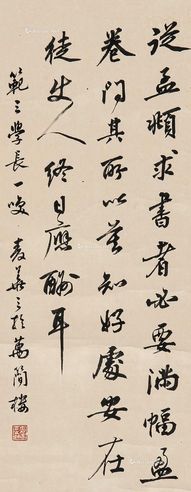 從孟頫求書者必要滿幅盈
卷問其所以莫知好處安在
徒使人終日應酬耳
範三學長一哂 麦華三於萬簡樓